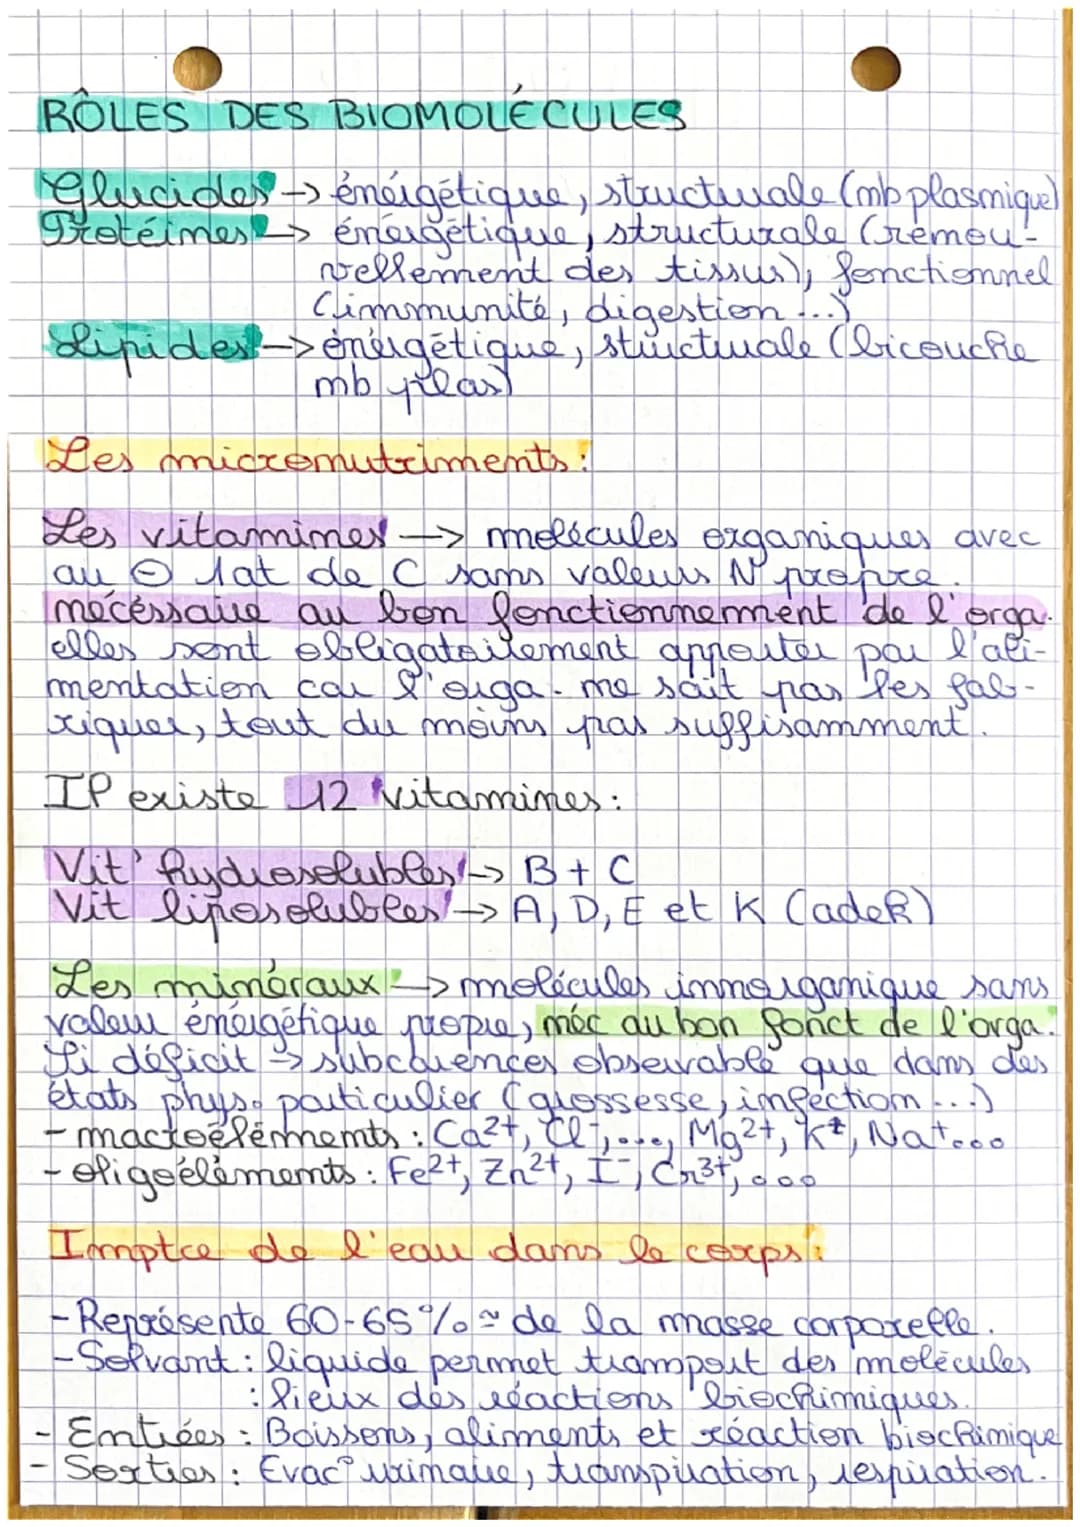 RÔLES DES BIOMOLÉCULES
Glucides → énergétique, structurale (mb plasmique)
Protéines → énergétique, structurale (renou-
vellement des tissus), fonctionnel
(immunité, digestion ...)
Lipides → énergétique, structurale (bicouche
mb plas)
Les micronutriments :
Les vitamines → molécules organiques avec
au ⊖ 1 at de C sans valeurs N° propre.
nécéssaire au bon fonctionnement de l'orga.
elles sont obligatoirement apporter par l'ali-
mentation car l'orga. ne sait pas les fab-
riquer, tout du moins pas suffisamment.
Il existe 12 vitamines :
Vit° hydrosolubles → B + C
Vit liposolubles → A, D, E et K (adek)
Les minéraux → molécules innorganique sans
valeur énergétique propre, néc au bon fonct de l'orga.
Si déficit → subcarences observable que dans des
états phys. particulier (grossesse, infection ...)
- macroéléments : Ca²⁺, Cl⁻, ..., Mg²⁺, K⁺, Na⁺...
- oligoéléments : Fe²⁺, Zn²⁺, I⁻, Cr³⁺, ...
Imptce de l'eau dans le corps :
- Représente 60-65% ≃ de la masse corporelle.
- Solvant : liquide permet transport des molécules
: lieux des réactions biochimiques.
- Entrées : Boissons, aliments et réaction biochimique
- Sorties : Evac° urinaire, transpiration, respiration.